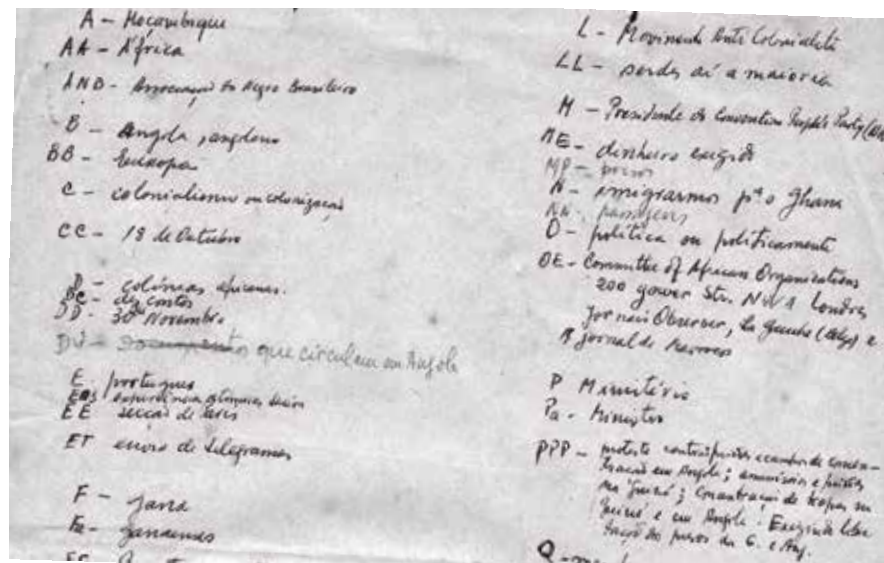 A – Moçambique
AA – África
AND – Associação do Negro Brasileiro
B – Angola, angolano
BB – Europa
C – colonialismo ou colonização
CC – 18 de Outubro
D – colónias africanas.
DC – dez contos
DD – 30 Novembro
DV – Documentos que circulem em Angola
E. português
EE secção de
ET envio de telegramas
F – Gana
Fa – ganenses
L – Movimento Anti Colonialista
LL – perdes aí a maioria
M – Presidente do Convention People's Party
ME – dinheiro exigido
MP – presos
N – emigrarmos pª o Ghana
NN – passagens
O – política ou politicamente
OE – Committee of African Organizations
200 Gower Str. NW1 Londres
Jornais Observer, La Gauche (Belg) e
Jornal de Marrocos
P Ministério
Pa – Ministro
PPP – protesto contra prisões e campos de concen-
tração em Angola; e prisões
na Guiné; Concentração de tropas na
Guiné e em Angola. Exigindo liber
tação dos presos da G. e Ang.
Q –